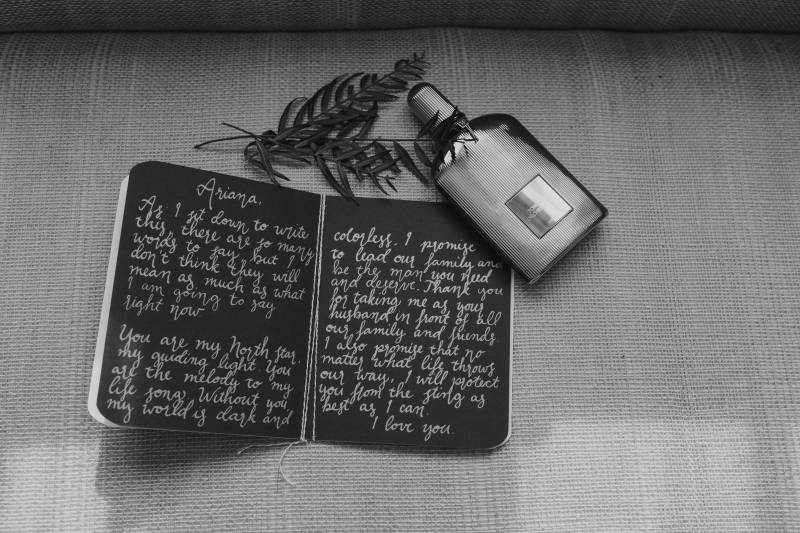 Ariana,
As I sit down to write
this, there are so many
words to say, but I
don't think they will
mean as much as what
I am going to say
right now
You are my North star.
my guiding light. You
are the melody to my
life song. Without you,
my world is dark and
colorless. I promise
to lead our family and
be the man you need
and deserve. Thank you
for taking me as your
husband in front of all
our family and friends
I also promise that no
matter what life throws
our way, I will protect
you from the sting as
best as I can.
I love you.